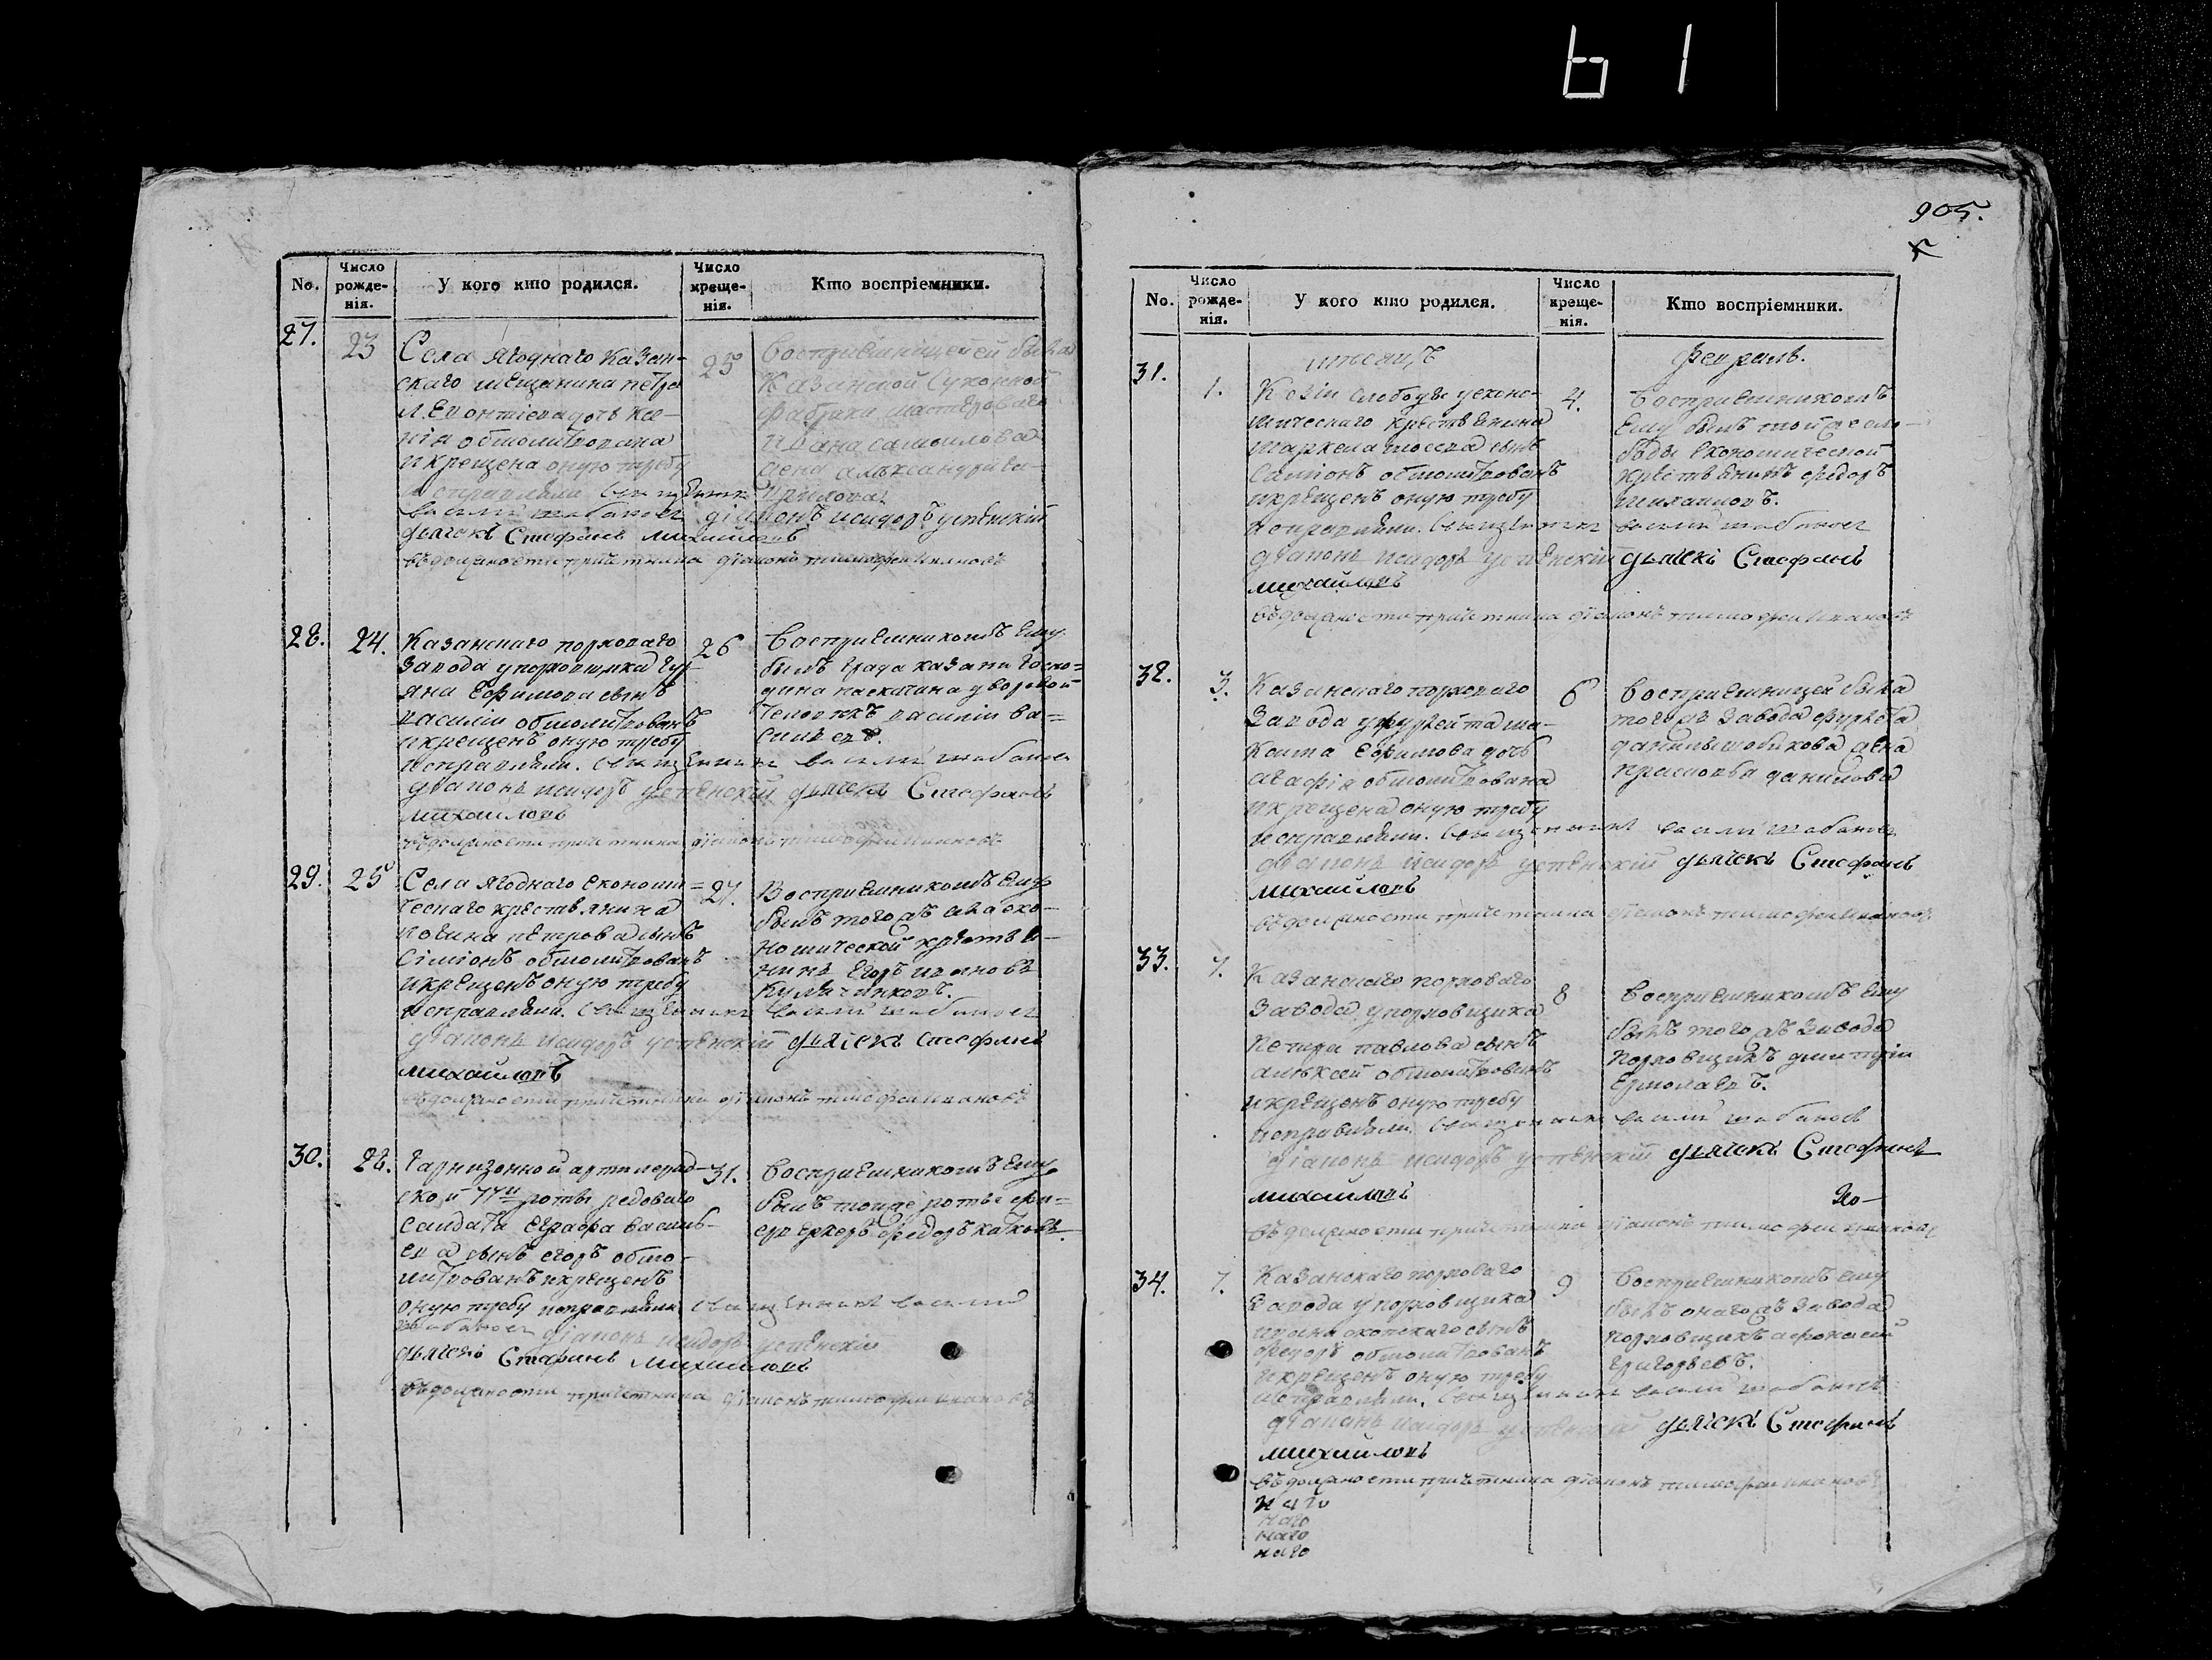 905.
No.
Число рожде- нія.
У кого кто родился.
Число креще- нія.
Кто воспріемники.
27.
23
Села Ягоднаго Казан-
скаго мещанина петра
Леонтіева дочь
обмолитвована
и крещена оную требу
исправляли священникъ
василий шабановъ діаконъ исидоръ успенскій
дьячекъ Стефанъ михайловъ
въ должности причетника діаконъ тимофей ивановъ
25
Воспріемницей ей была
Казанской Суконной
фабрики мастероваго
ивана самойлова
жена александра
28.
24.
Казанскаго пороховаго
завода у пороховщика
яна Ефимова сынъ
василий обмолитвованъ
и крещенъ оную требу
исправляли. священникъ василий шабановъ
діаконъ исидоръ успенскій дьячекъ Стефанъ
михайловъ
въ должности причетника діаконъ тимофей ивановъ
26
Воспріемникомъ ему
былъ града казани госпо=
дина дворовой
человекъ василий ва=
сильевъ.
29.
25
Села Ягоднаго економи=
ческаго крестьянина
петрова сынъ
Симіонъ обмолитвованъ
и крещенъ оную требу
исправляли. священникъ василий шабановъ
діаконъ исидоръ успенскій дьячекъ Стефанъ
михайловъ
въ должности причетника діаконъ тимофей ивановъ
27.
Воспріемникомъ ему
былъ того жъ села эко-
номической крестья-
нинъ Егоръ ивановъ
30.
28.
Гарнизонной артилерій-
ской 77й роты редоваго
салдата Еграфа василь-
ева сынъ егоръ обмо-
литвованъ и крещенъ
оную требу исправляли священникъ василий
шабановъ діаконъ исидоръ успенскій
дьячекъ Стефанъ михайловъ
въ должности причетника діаконъ тимофей ивановъ
31.
Воспріемникомъ ему
былъ той же роты фей=
ерверкеръ федоръ катковъ.
No.
Число рожде- нія.
У кого кто родился.
Число креще- нія.
Кто воспріемники.
месяцъ
февраль.
31.
1.
слободы у еконо-
мическаго крестьянина
маркела моссева сынъ
Симіонъ обмолитвованъ
и крещенъ оную требу
исправляли. священникъ василий шабановъ
діаконъ исидоръ успенскій дьячекъ Стефанъ
михайловъ
въ должности причетника діаконъ тимофей ивановъ
4.
Воспріемникомъ
ему былъ той же сло-
боды економической
крестьянинъ федоръ
михайловъ.
32.
3.
Казанскаго пороховаго
завода у фурлейта ма-
ксима Ефимова дочь
агафія обмолитвована
и крещена оную требу
исправляли. священникъ василий шабановъ
діаконъ исидоръ успенскій дьячекъ Стефанъ
михайловъ
въ должности причетника діаконъ тимофей ивановъ
6
Воспріемницей была
того жъ завода фурлейта
данилы жена
прасковья данилова
33.
7.
Казанскаго пороховаго
завода у пороховщика
петра павлова сынъ
алексей обмолитвованъ
и крещенъ оную требу
исправляли. священникъ василий шабановъ
діаконъ исидоръ успенскій дьячекъ Стефанъ
михайловъ
въ должности причетника діаконъ тимофей ивановъ
8
Воспріемникомъ ему
былъ того жъ завода
пороховщикъ дмитрій
Ермолаевъ.
34.
7.
Казанскаго пороховаго
завода у пороховщика
ивана сынъ
федоръ обмолитвованъ
и крещенъ оную требу
исправляли. священникъ василий шабановъ
діаконъ исидоръ успенскій дьячекъ Стефанъ
михайловъ
въ должности причетника діаконъ тимофей ивановъ
9
Воспріемникомъ ему
былъ онаго жъ завода
пороховщикъ афонасий
григорьевъ.
наго
наго
наго
наго